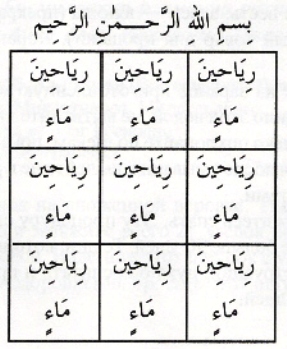 بِسْمِ اللَّهِ الرَّحْمٰنِ الرَّحِيمِ
رِيَاحِينَ رِيَاحِينَ رِيَاحِينَ
مَاءٍ مَاءٍ مَاءٍ
رِيَاحِينَ رِيَاحِينَ رِيَاحِينَ
مَاءٍ مَاءٍ مَاءٍ
رِيَاحِينَ رِيَاحِينَ رِيَاحِينَ
مَاءٍ مَاءٍ مَاءٍ